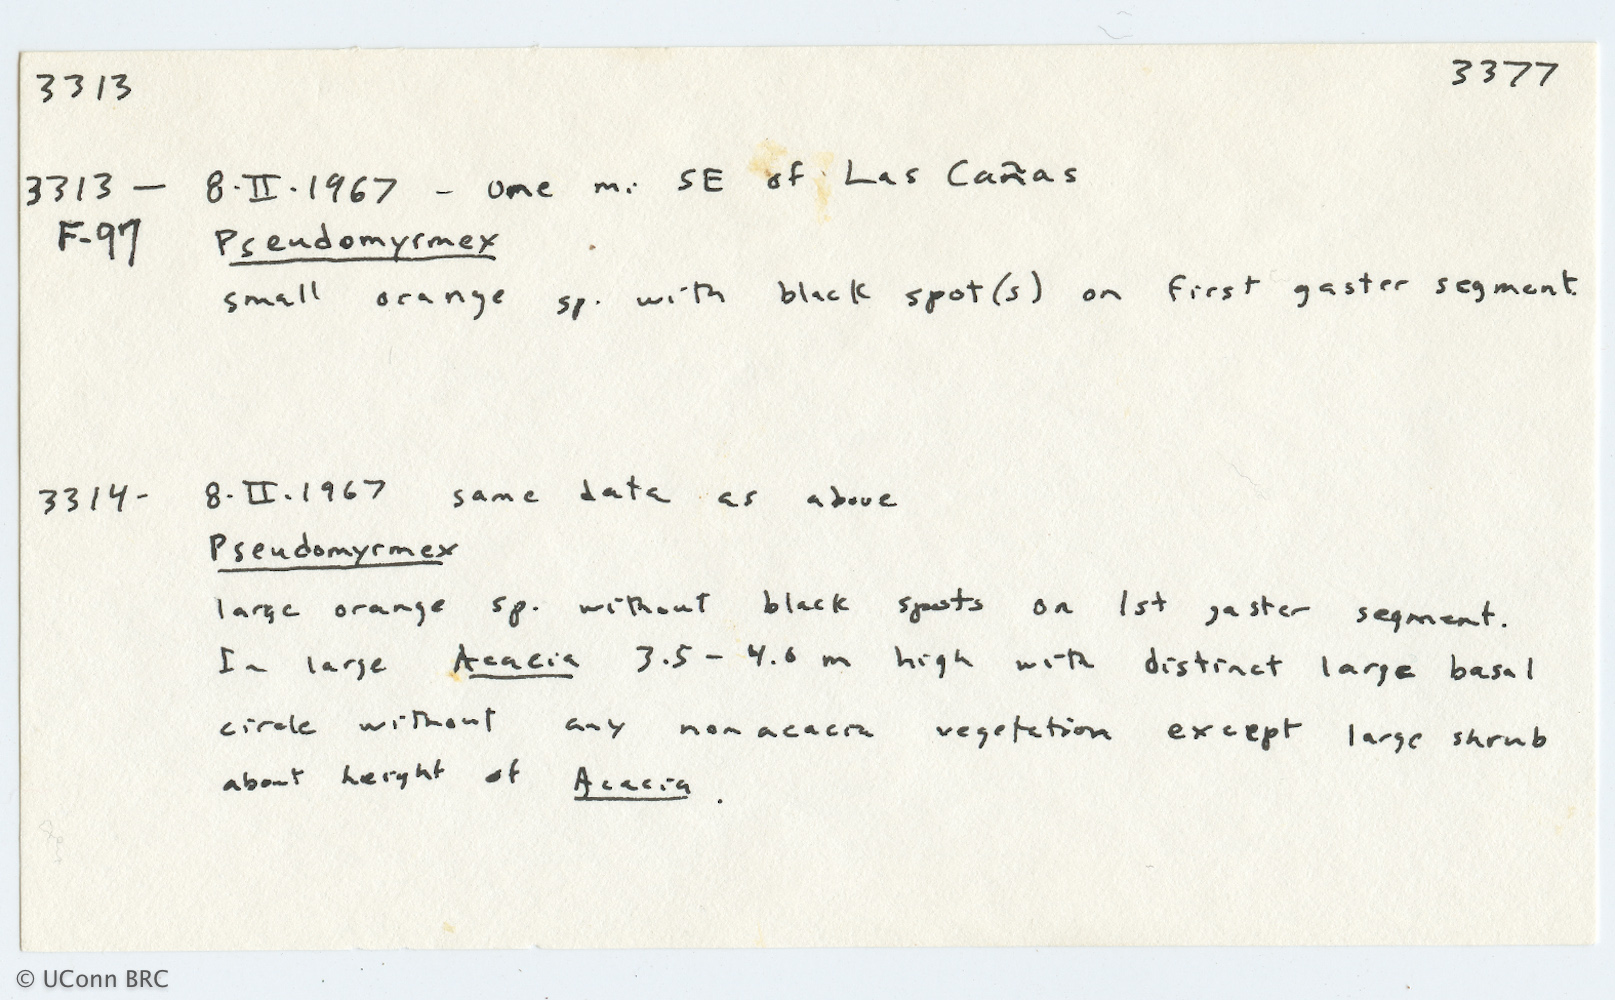 3313 3377
3313 — 8·II·1967 - One mi SE of Las Cañas
F-97 Pseudomyrmex
small orange sp. with black spot(s) on first gaster segment.
3314- 8·II·1967 same data as above
Pseudomyrmex
large orange sp. without black spots on 1st gaster segment.
In large Acacia 3.5 - 4.0 m high with distinct large basal
circle without any non acacia vegetation except large shrub
about height of Acacia.
© UConn BRC